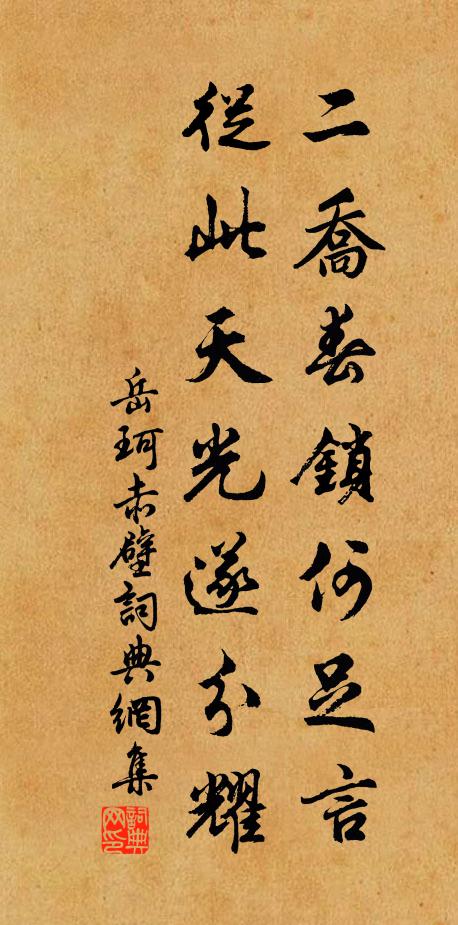 二喬春鎖何足言
從此天光遂分耀
岳珂赤壁詞典網集
詞典网印